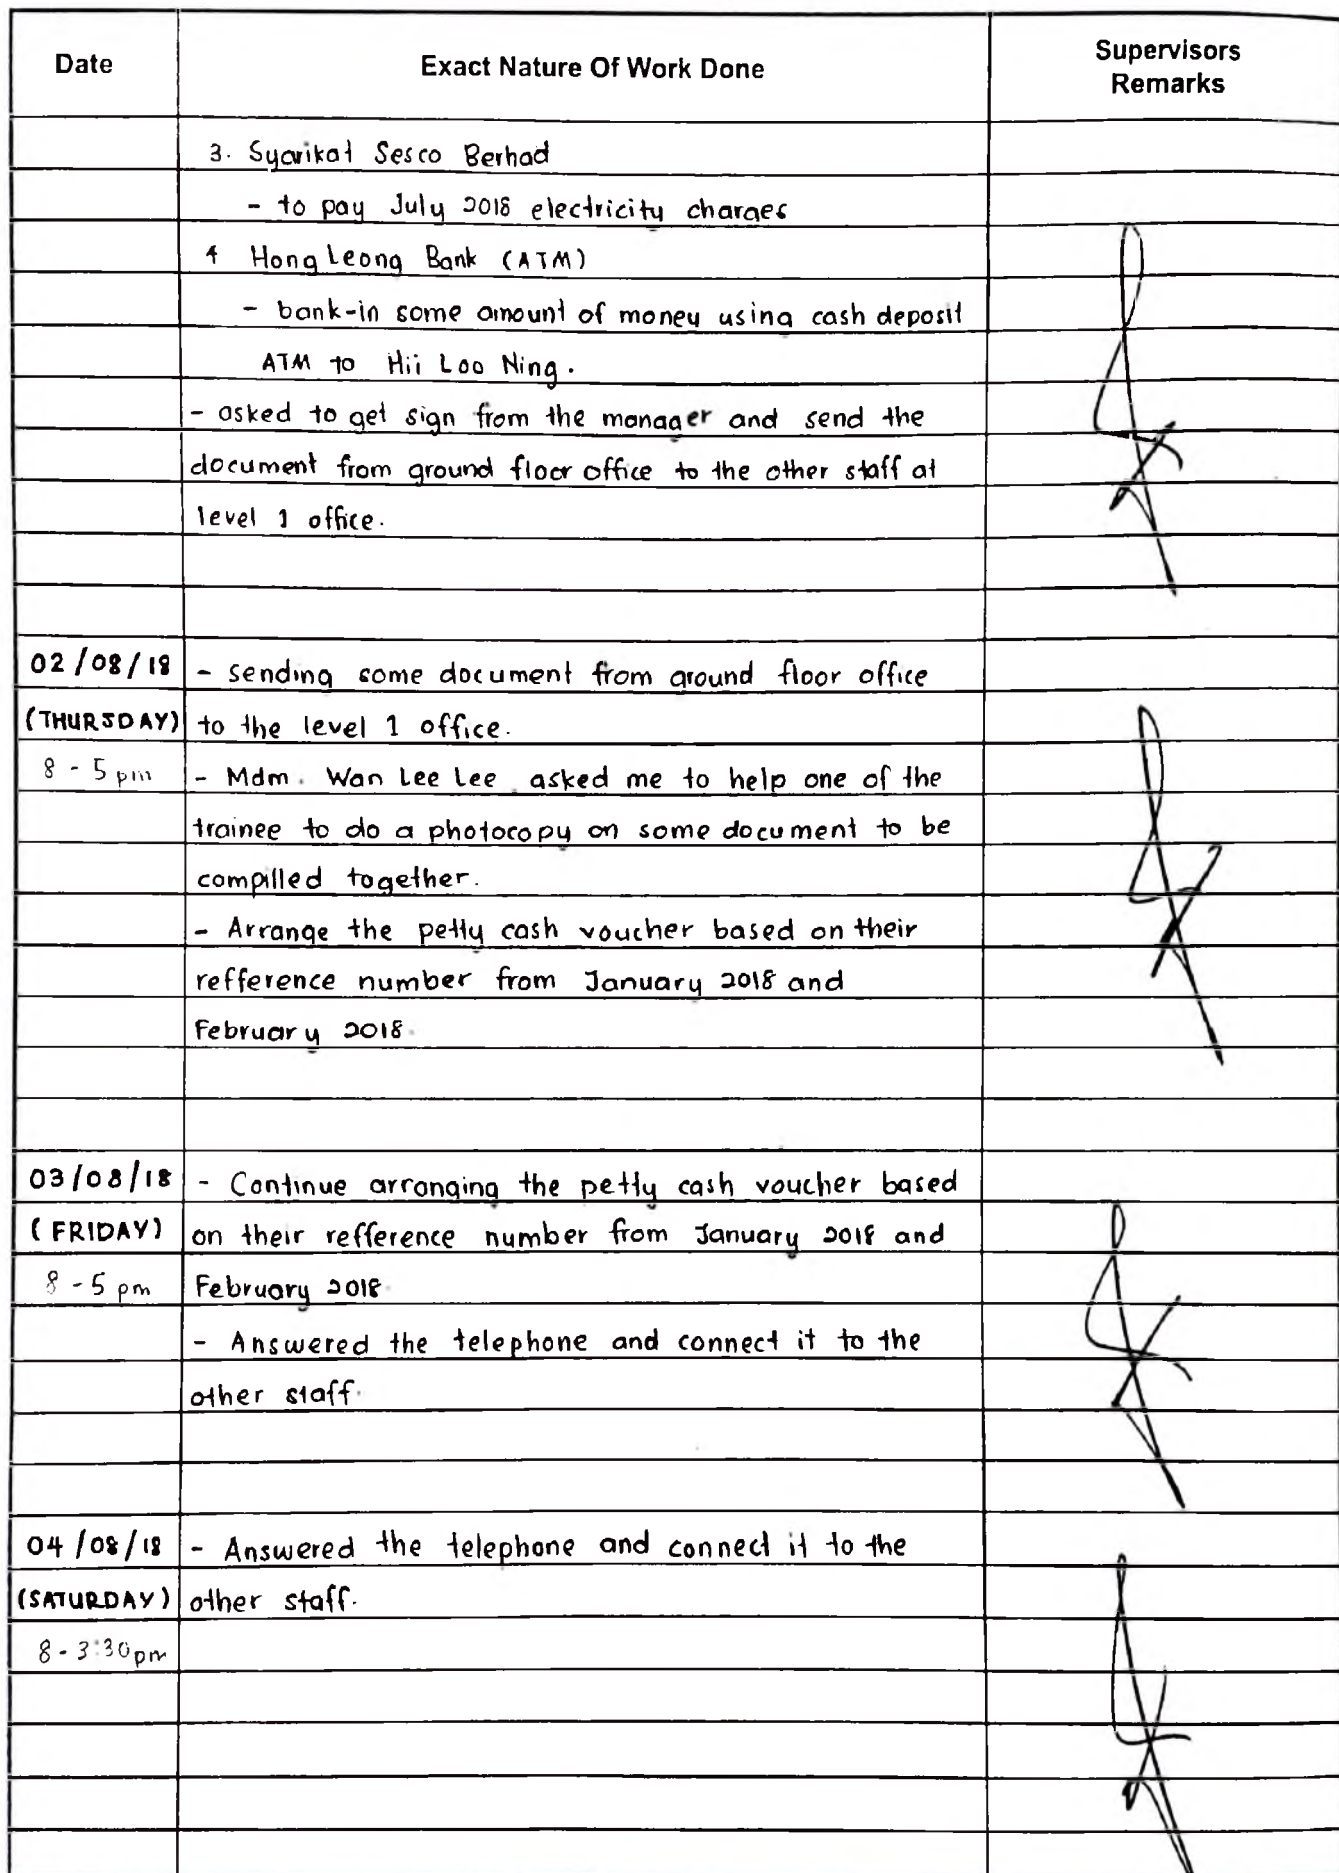 Date Exact Nature Of Work Done Supervisors
Remarks
3. Syarikat Sesco Berhad
- to pay July 2018 electricity charges
4 Hong Leong Bank (ATM)
- bank-in some amount of money using cash deposit
ATM to Hii Loo Ning.
- asked to get sign from the manager and send the
document from ground floor office to the other staff at
level 1 office.
02/08/18 - sending some document from ground floor office
(THURSDAY) to the level 1 office.
8 - 5 pm - Mdm. Wan Lee Lee asked me to help one of the
trainee to do a photocopy on some document to be
compilled together.
- Arrange the petty cash voucher based on their
refference number from January 2018 and
February 2018.
03/08/18 - Continue arranging the petty cash voucher based
(FRIDAY) on their refference number from January 2018 and
8 - 5 pm February 2018.
- Answered the telephone and connect it to the
other staff.
04/08/18 - Answered the telephone and connect it to the
(SATURDAY) other staff.
8 - 3:30pm